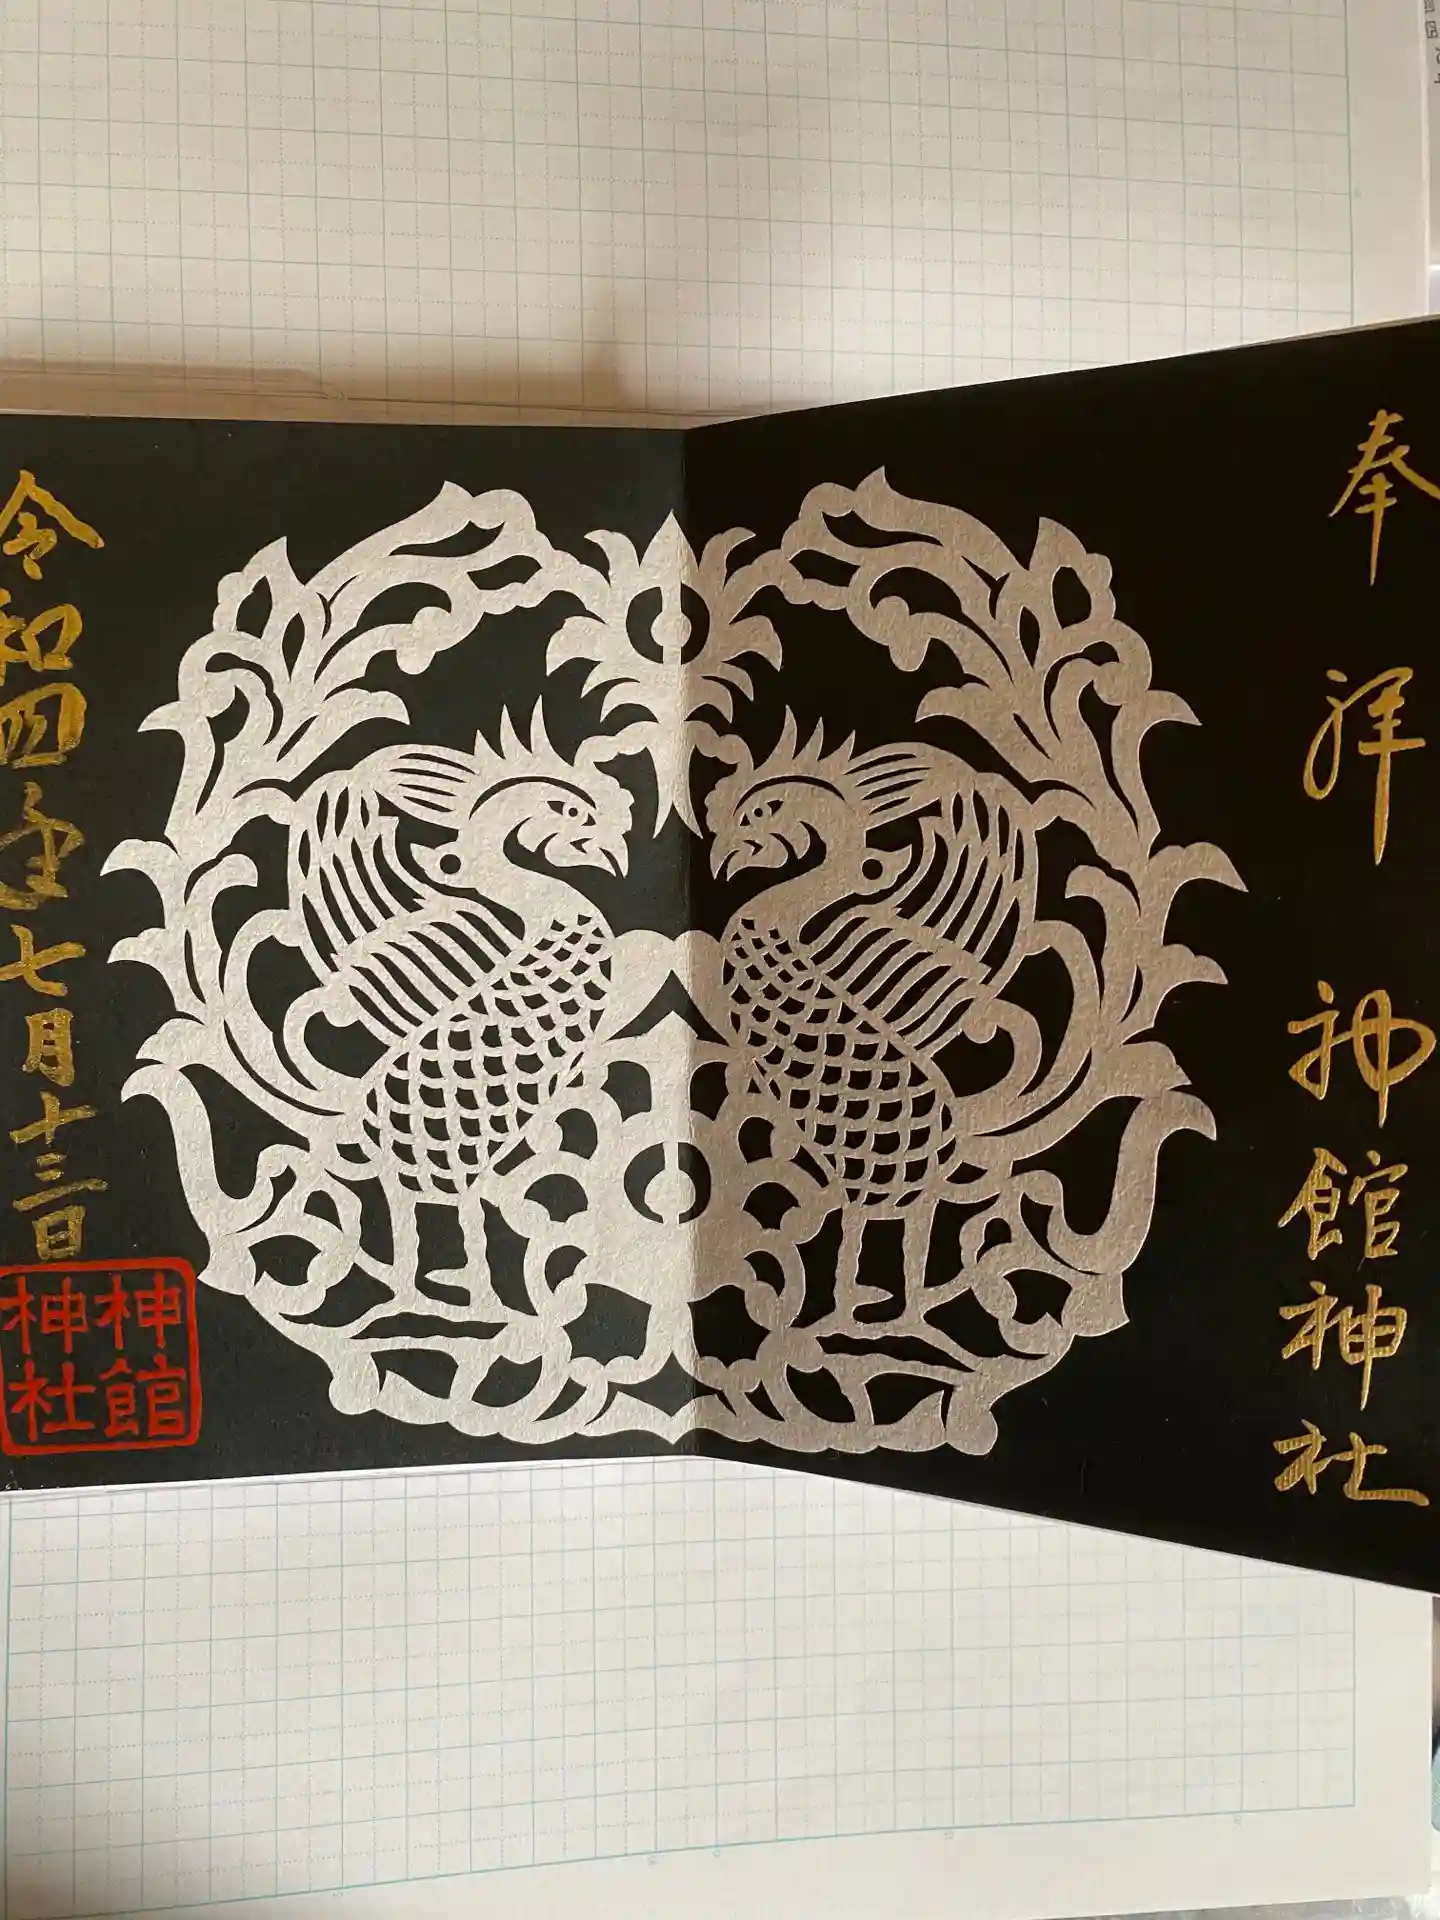 奉拝
神館神社
令和四年七月十三日
神館
神社